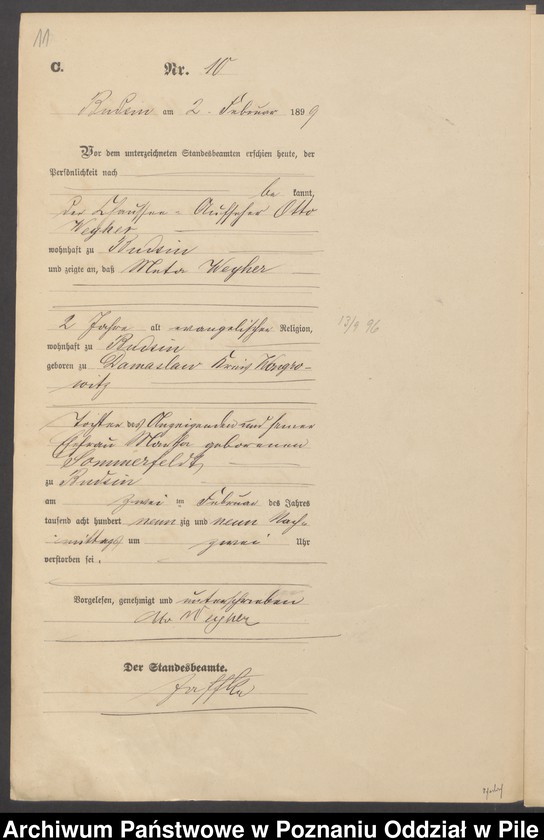 11
C. Nr. 10
Budsin am 2. Februar 1899
Vor dem unterzeichneten Standesbeamten erschien heute, der
Persönlichkeit nach
be kannt,
der Chaussee-Aufseher Otto
Weyher
wohnhaft zu Budsin
und zeigte an, daß Meta Weyher
2 Jahre alt evangelischer Religion,
13/9 96
wohnhaft zu Budsin
geboren zu Damaslaw Kreis Wongro-
witz
Tochter des Anzeigenden und seiner
Ehefrau Martha geborenen
Sommerfeldt
zu Budsin
am zwei ten Februar des Jahres
tausend acht hundert neun zig und neun Nach-
mittags um zwei Uhr
verstorben sei.
Vorgelesen, genehmigt und unterschrieben
Otto Weyher
Der Standesbeamte.
Archiwum Państwowe w Poznaniu Oddział w Pile